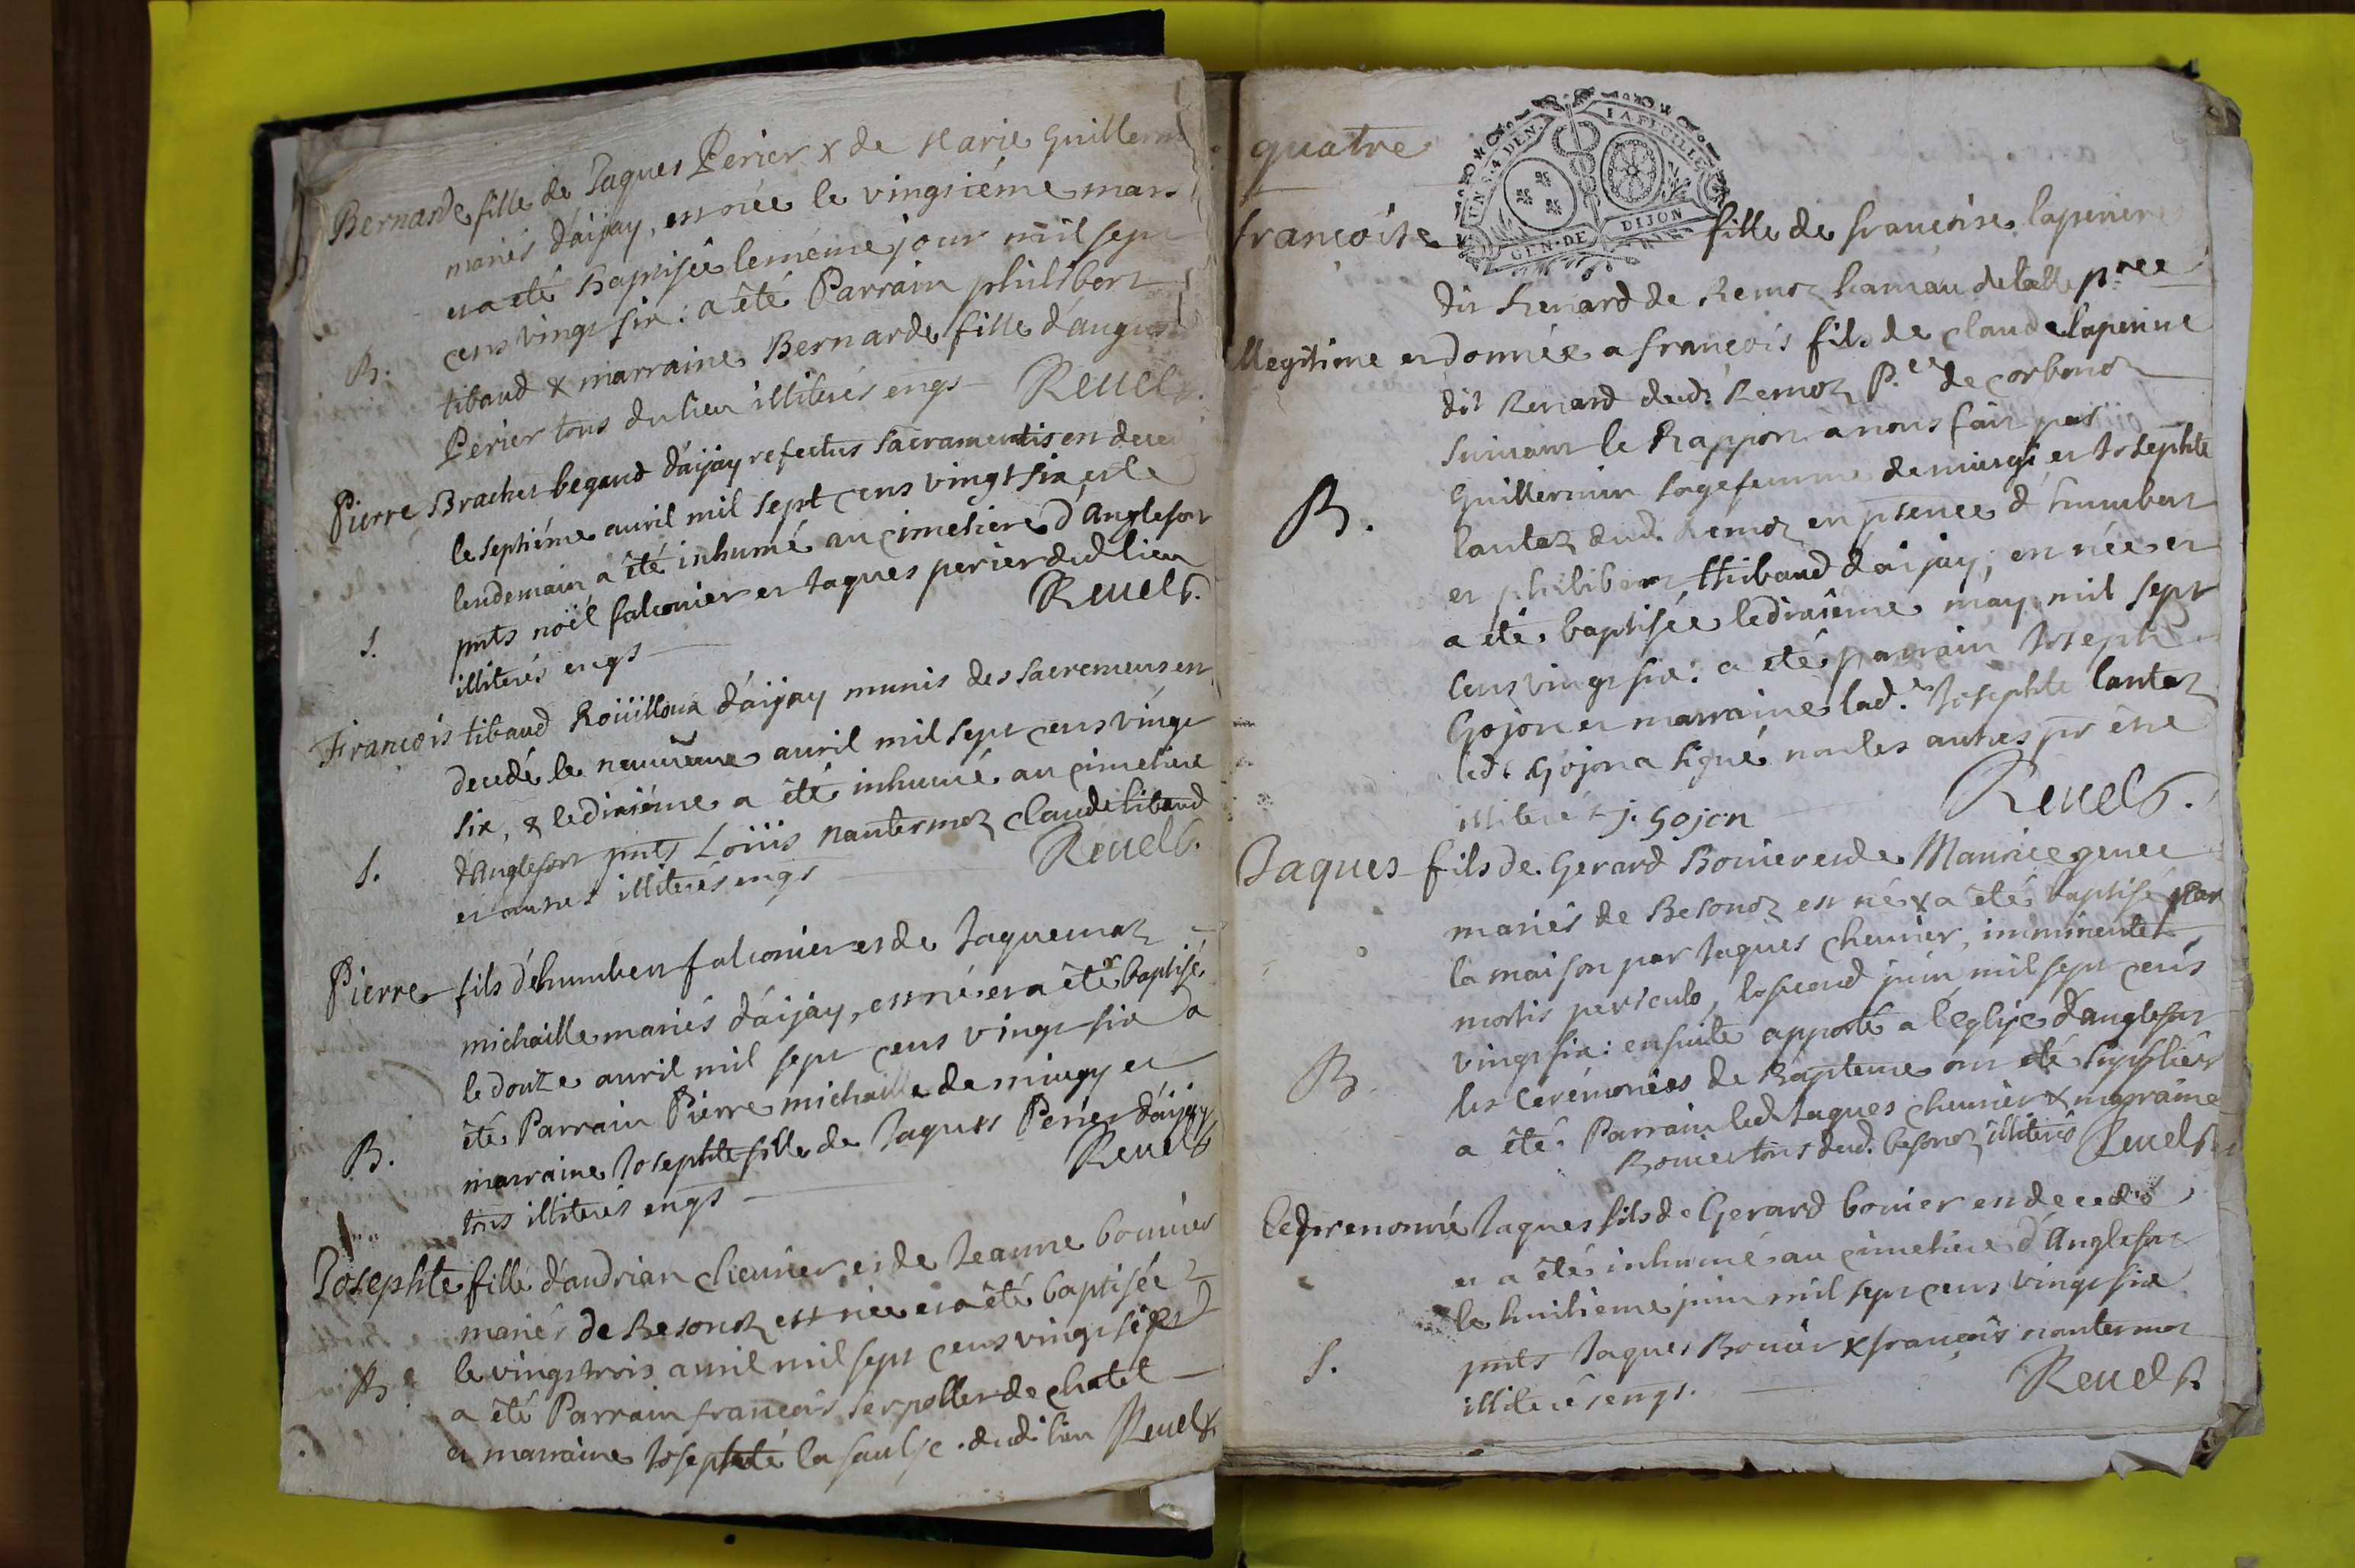 Bernarde fille de Jaques Perier & de Marie Guillerm
mariés d'aijay, est née le vingtiéme mars
et a eté Baptisée le méme jour mil sept
cens vingt six : a ête Parrain philibert
B.
tibaud & marraine Bernarde fille d'august
Perier tous du lieu illiterés engs Reuel
Pierre Brachet begand d'aijay refectus sacramentis est decedé
le septiéme avril mil sept cens vingt six, et le
lendemain a ête inhumé au cimetiere d'Anglefort
pnts noël falconier et Jaques perier dud lieu
S.
illiterés engs Reuel
François tibaud Roüilloux d'aijay munis des sacremens est
decedé le neuviéme avril mil sept cens vingt
six, & le dixiéme a ête inhumé au cimetiere
d'Anglefort pnts Loüis nantermoz claude tibaud
S.
et autres illiterés engs Reuel
Pierre fils d'humbert falconier et de Jaquemaz
michaille mariés d'aijay, est né et a ête baptisé
le douze avril mil sept cens vingt six a
été Parrain Pierre michaille de miugy et
B.
marraine Josephte fille de Jaques Perier d'aijay
tous illiterés engs Reuel
Josephte fille d'andrian cheunier et de Jeanne bouvier
mariés de Besonoz est née et a êté baptisée
le vingt trois avril mil sept cens vingt six
B.
a êté Parrain françois serpollet de chatel
et marraine Josephte la saulse dud. lieu Reuel
quatre
UN S. 4 DEN. LA FEUILLE
GEN. DE DIJON
françoise fille de françoise laperiere
dit Renard de Remoz hamau de lad. pnee
Illegitime et donnée a françois fils de claude laperiere
dit Renard dud. Remoz P.e de corbonoz
suivant le Rapport a nous fait par
Guillermin sagefemme de miurgi et Josephte
B.
lantaz dud. Remoz en psence d'humbert
et philibert thibaud d'aijay; est née et
a eté baptisée le dixiéme may mil sept
cens vingt six : a eté parrain Joseph
Gojon et marraine lad.e Josephte lantaz
led. Gojon a signé non les autres pr être
illiterés j. Gojon Reuel
Jaques fils de Gerard Bouier et de Maurice genee
mariés de Besonoz est né & a été baptisé par
la maison par Jaques cheunier, imminente
mortis periculo, le second juin mil sept cens
vingt six : ensuite apporté a l'église d'anglefort
B.
les Cerémonies de Bâpteme ont eté supplées
a été Parrain led. Jaques cheunier & marraine
Bouier tous dud. besonoz illiterés Reuel
Led. prenomé Jaques fils de Gerard bouier est decedé
et a êté inhumé au cimetiere d'Anglefort
le huitieme juin mil sept cens vingt six
S.
pnts Jaques Bouier & françois nantermoz
illiterés engs. Reuel